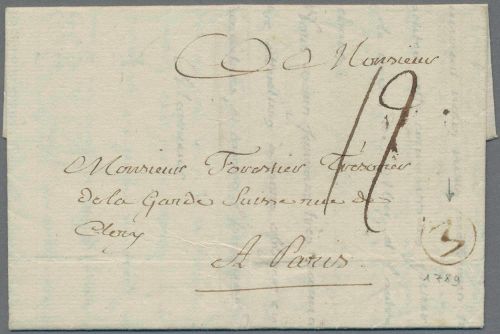 A Monsieur
19
Monsieur Forestier Trésorier
de la Garde Suisse rue de
Clery
A Paris
1789